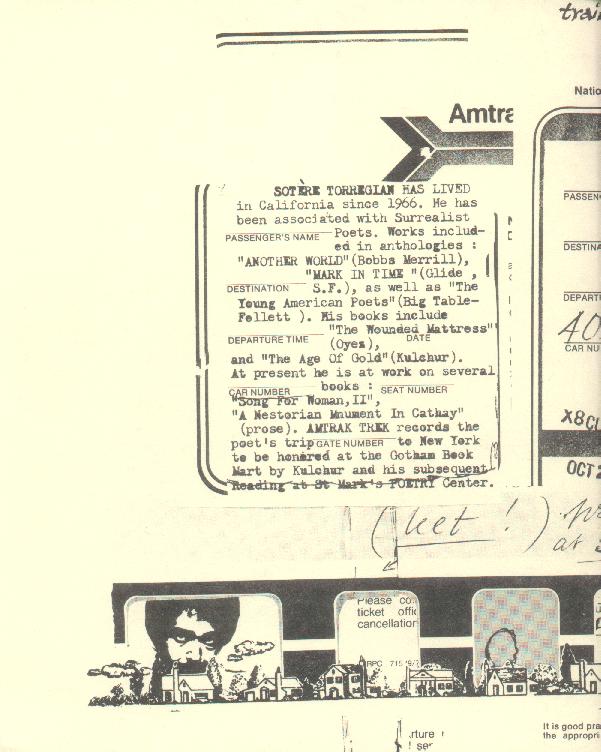 trai
Natio
Amtra
SOTÈRE TORREGIAN HAS LIVED
in California since 1966. He has
been associated with Surrealist
PASSENGER'S NAME Poets. Works includ-
ed in anthologies :
"ANOTHER WORLD"(Bobbs Merrill),
"MARK IN TIME "(Glide ,
DESTINATION S.F.), as well as "The
Young American Poets"(Big Table-
Follett ). His books include
DEPARTURE TIME "The Wounded Mattress"
(Oyez), DATE
and "The Age Of Gold"(Kulchur).
At present he is at work on several
CAR NUMBER books : SEAT NUMBER
"Song For Woman,II",
"A Nestorian Mnument In Cathay"
(prose). AMTRAK TREK records the
poet's trip GATE NUMBER to New York
to be honored at the Gotham Book
Mart by Kulchur and his subsequent
Reading at St Mark's POETRY Center.
PASSEN
DESTINA
DEPART
40
CAR NU
X8CL
OCT 2
(ket !)
at
Please co
ticket offic
cancellation
RPC 715 9/7
rture
! ser
It is good pra
the appropri